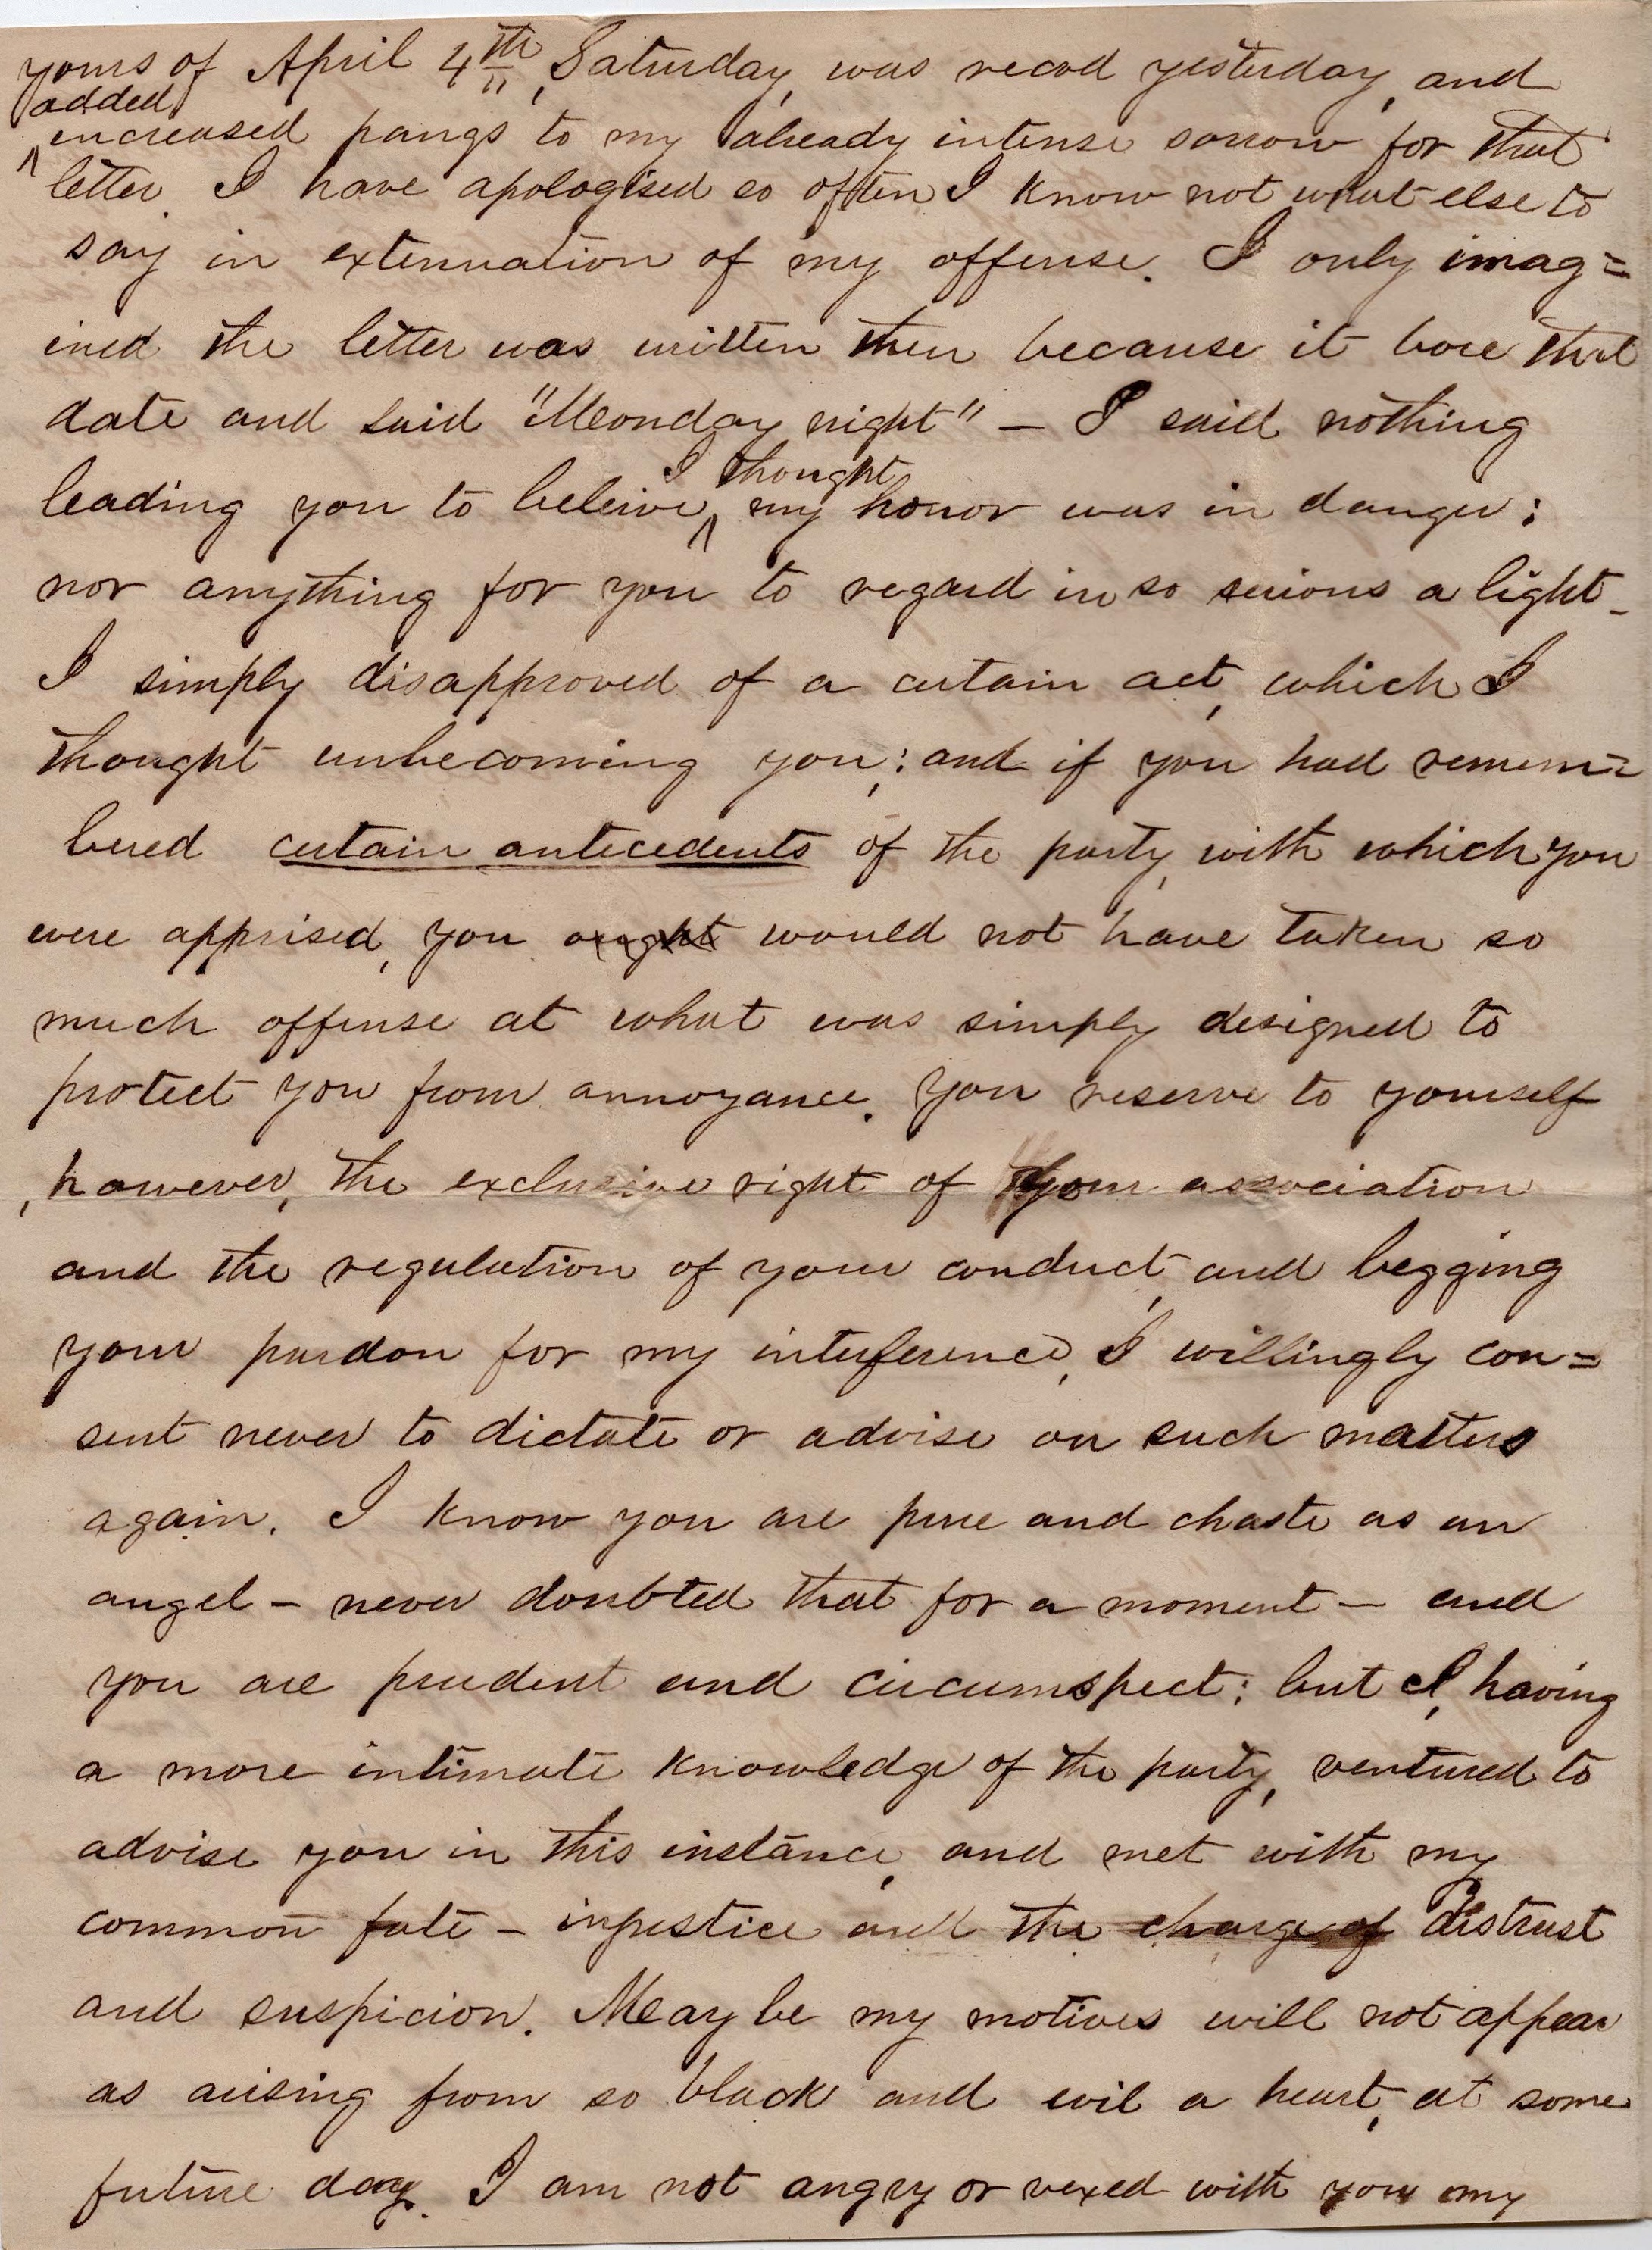 yours of April 4th, Saturday, was recvd yesterday, and
added
increased pangs to my already intense sorrow for that
letter. I have apologised so often I know not what else to
say in extenuation of my offense. I only imag=
ined the letter was written then because it bore that
date and said "Monday night" – I said nothing
I thought
leading you to beleive, my honor was in danger;
nor anything for you to regard in so serious a light_
I simply disapproved of a certain act, which I
thought unbecoming you; and if you had remem=
bered certain antecedents of the party, with which you
were apprised, you ought would not have taken so
much offense at what was simply designed to
protect you from annoyance. You reserve to yourself
, however, the exclusive right of your association
and the regulation of your conduct, and begging
your pardon for my interference, I willingly con=
sent never to dictate or advise on such matters
again. I know you are pure and chaste as an
angel – never doubted that for a moment – and
you are prudent and circumspect; but I, having
a more intimate knowledge of the party, ventured to
advise you in this instance, and met with my
common fate – injustice and the charge of distrust
and suspicion. May be my motives will not appear
as arising from so black and evil a heart, at some
future day. I am not angry or vexed with you my